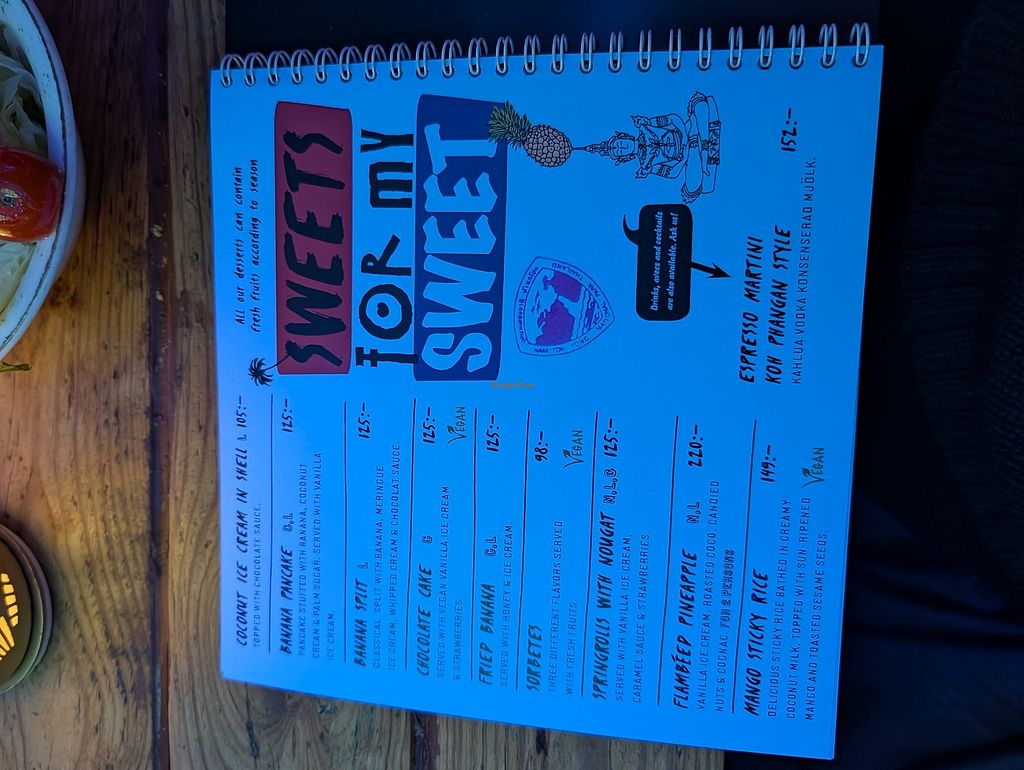 All our desserts can contain
fresh fruits according to season
SWEETS
FOR MY
SWEET
Drinks, avecs and cocktails
are also available. Ask us!
COCONUT ICE CREAM IN SHELL L 105:-
TOPPED WITH CHOCOLATE SAUCE.
BANANA PANCAKE G,L 125:-
PANCAKE STUFFED WITH BANANA, COCONUT
CREAM & PALM SUGAR. SERVED WITH VANILLA
ICE CREAM.
BANANA SPLIT L 125:-
CLASSICAL SPLIT WITH BANANA, MERINGUE,
ICE CREAM, WHIPPED CREAM & CHOCOLAT SAUCE.
CHOCOLATE CAKE G 125:-
SERVED WITH VEGAN VANILLA ICE CREAM VEGAN
& STRAWBERRIES.
FRIED BANANA G,L 125:-
SERVED WITH HONEY & ICE CREAM.
SORBETES 98:-
THREE DIFFERENT FLAVORS SERVED VEGAN
WITH FRESH FRUITS
SPRINGROLLS WITH NOUGAT N,L,G 125:-
SERVED WITH VANILLA ICE CREAM,
CARAMEL SAUCE & STRAWBERRIES.
FLAMBEED PINEAPPLE N,L 220:-
VANILLA ICE CREAM, ROASTED COCO, CANDIED
NUTS & COGNAC FOR 2 PERSONS
MANGO STICKY RICE 149:-
DELICIOUS STICKY RICE BATHED IN CREAMY
COCONUT MILK, TOPPED WITH SUN-RIPENED VEGAN
MANGO AND TOASTED SESAME SEEDS.
ESPRESSO MARTINI
KOH PHANGAN STYLE 152:-
KAHLUA VODKA KONSENSERAD MJÖLK.
THAILAND